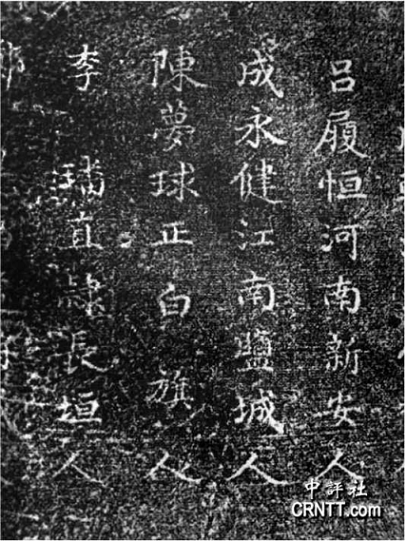 吕履恒河南新安人
成永健江南鹽城人
陳夢球正白旗人
李璠直隸長垣人
中評社
CRNTT.com